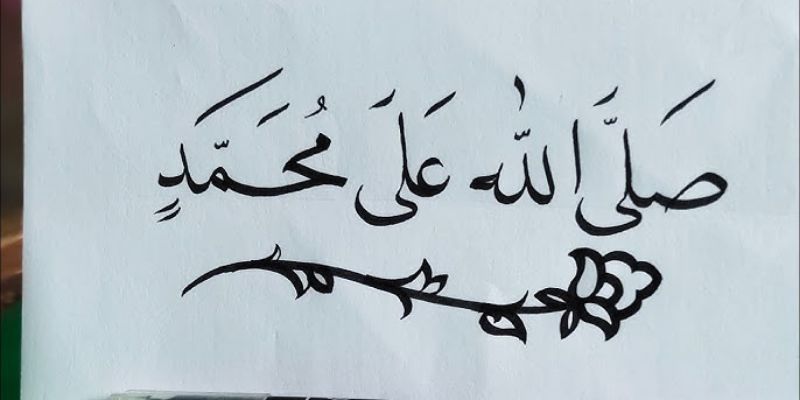 صَلَّى اللّٰه عَلَى مُحَمَّدٍ